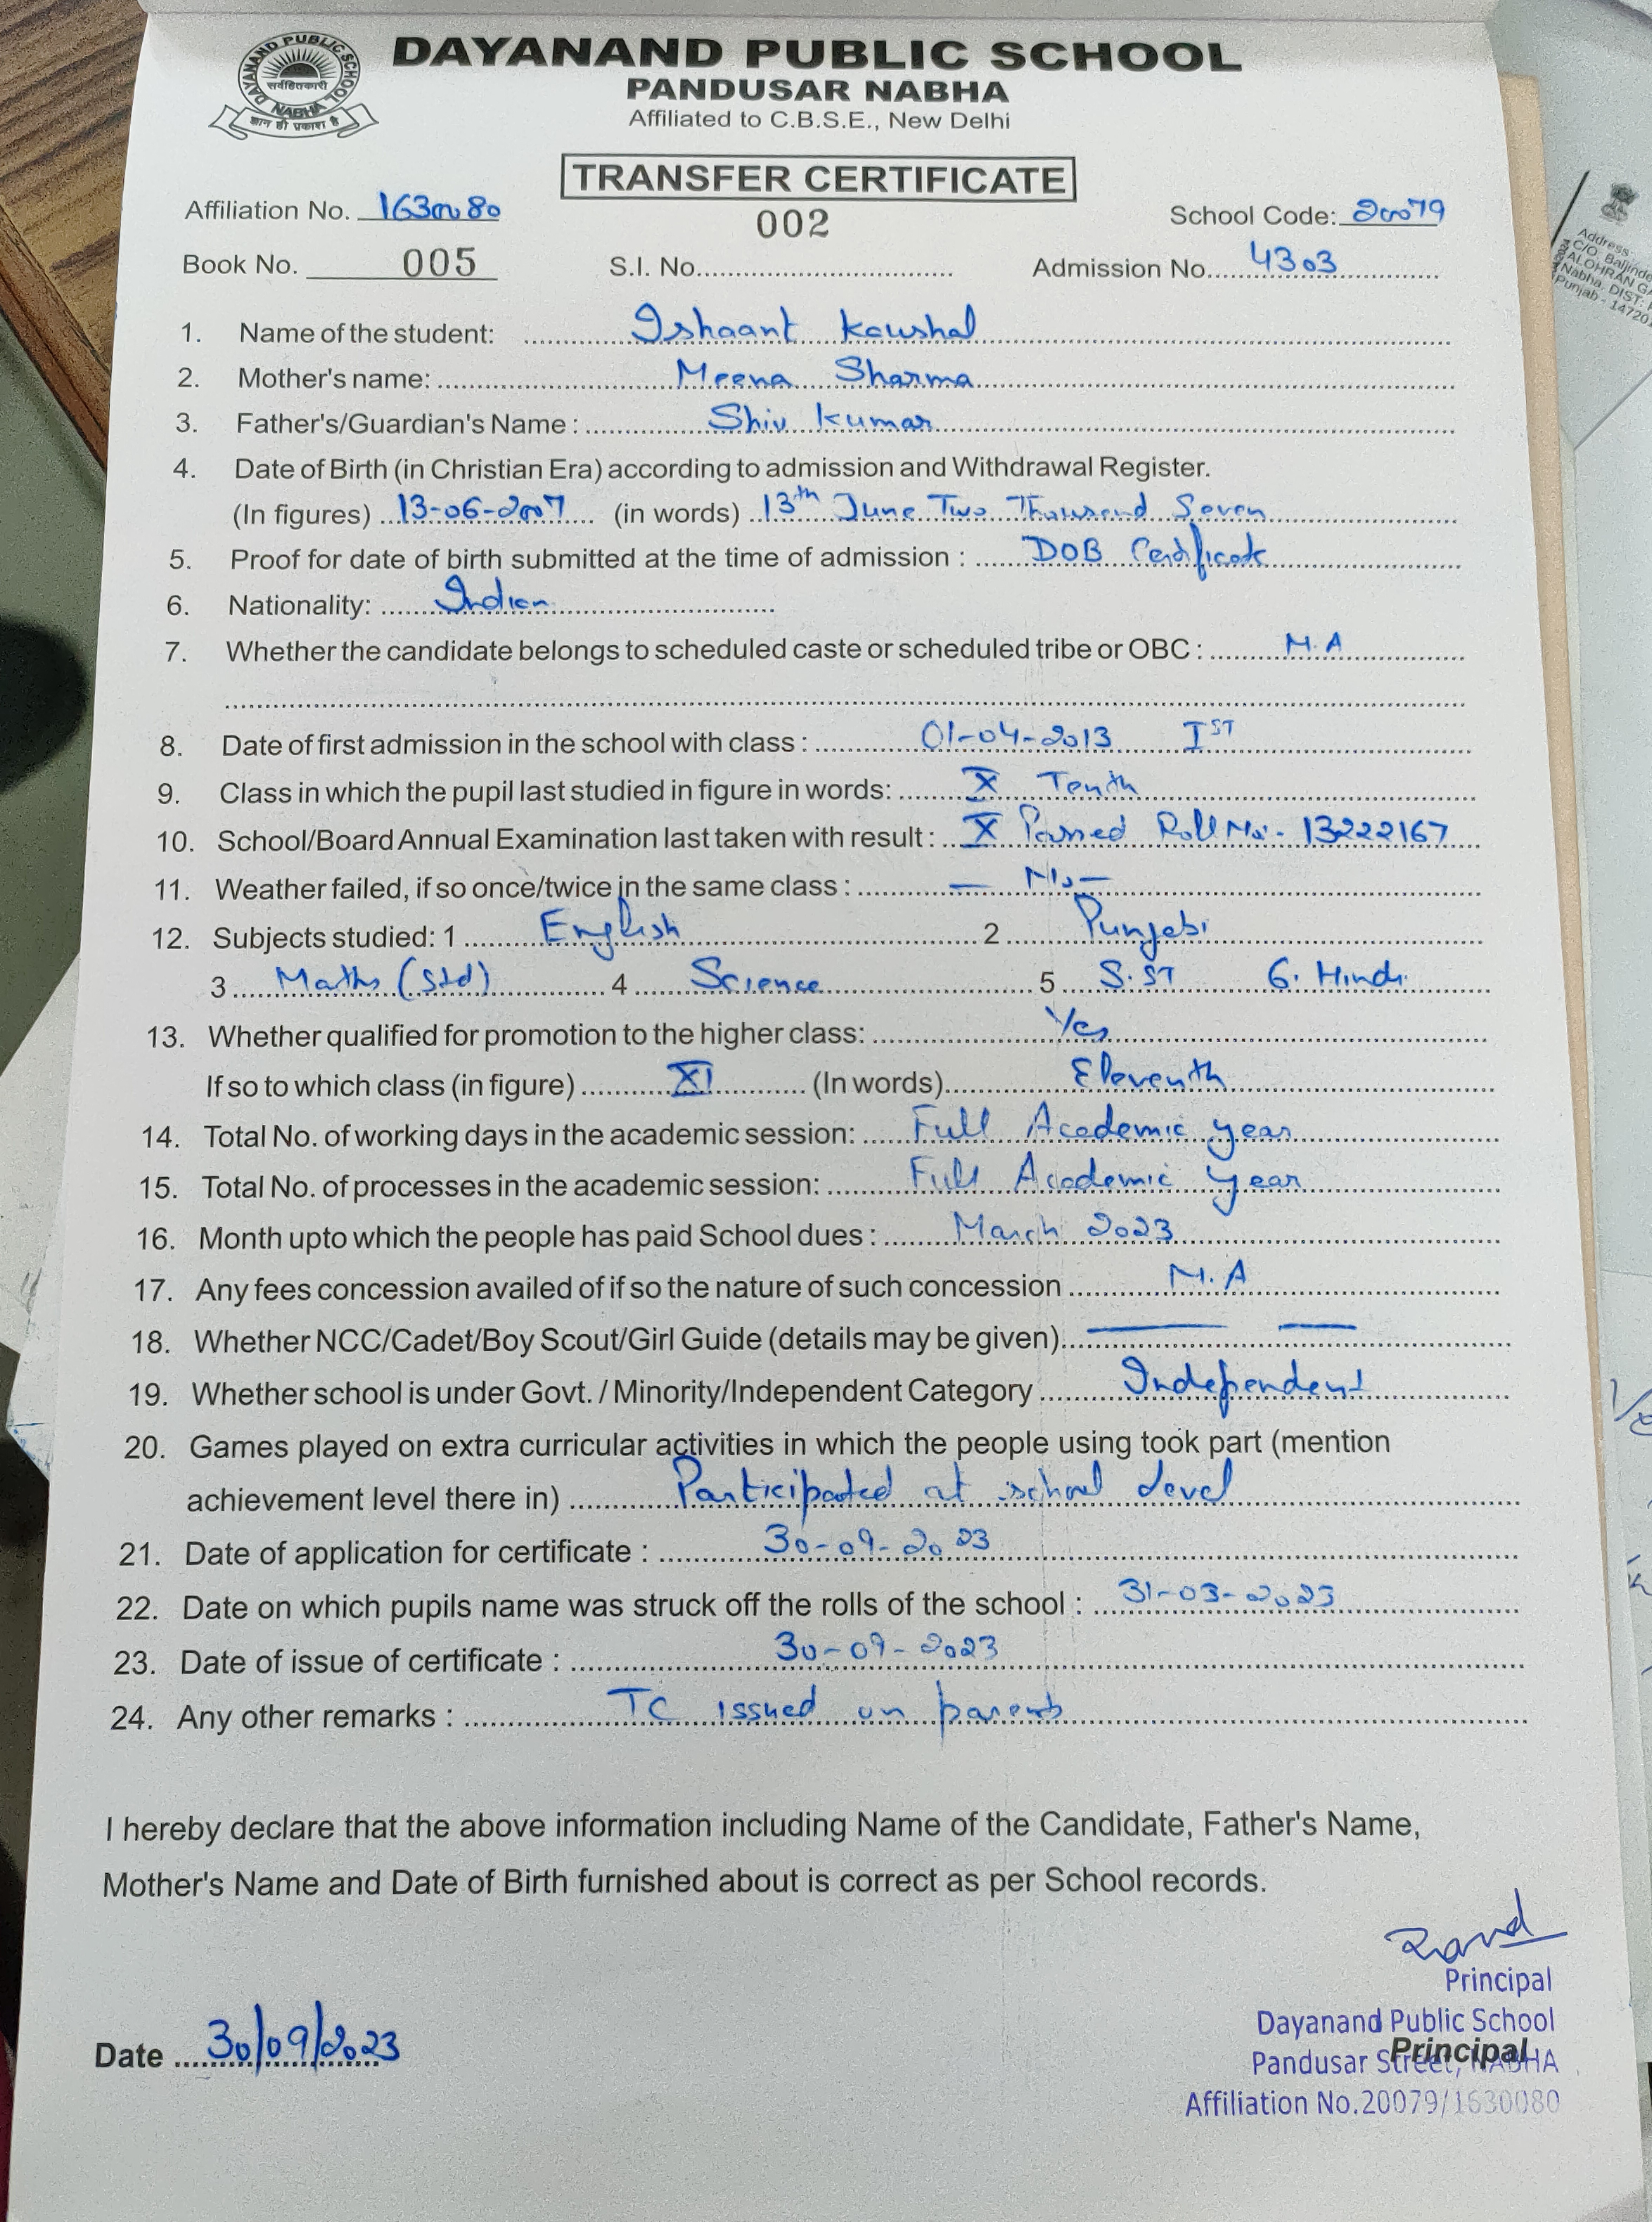 DAYANAND PUBLIC SCHOOL NABHA
सर्वहितकारी
ज्ञान ही प्रकाश है
DAYANAND PUBLIC SCHOOL
PANDUSAR NABHA
Affiliated to C.B.S.E., New Delhi
TRANSFER CERTIFICATE
Affiliation No. 1630080 002 School Code: 20079
Book No. 005 S.I. No. Admission No. 4303
1. Name of the student: Ishaant Kaushal
2. Mother's name: Meena Sharma
3. Father's/Guardian's Name : Shiv Kumar
4. Date of Birth (in Christian Era) according to admission and Withdrawal Register.
(In figures) 13-06-2007 (in words) 13th June Two Thousand Seven
5. Proof for date of birth submitted at the time of admission : DOB Certificate
6. Nationality: Indian
7. Whether the candidate belongs to scheduled caste or scheduled tribe or OBC : N.A
8. Date of first admission in the school with class : 01-04-2013 IST
9. Class in which the pupil last studied in figure in words: X Tenth
10. School/Board Annual Examination last taken with result : X Passed Roll No:- 13222167
11. Weather failed, if so once/twice in the same class : — No —
12. Subjects studied: 1 English 2 Punjabi
3 Maths (Std) 4 Science 5 S.ST 6. Hindi
13. Whether qualified for promotion to the higher class: Yes
If so to which class (in figure) XI (In words) Eleventh
14. Total No. of working days in the academic session: Full Academic year
15. Total No. of processes in the academic session: Full Academic year
16. Month upto which the people has paid School dues : March 2023
17. Any fees concession availed of if so the nature of such concession N.A
18. Whether NCC/Cadet/Boy Scout/Girl Guide (details may be given). — —
19. Whether school is under Govt. / Minority/Independent Category Independent
20. Games played on extra curricular activities in which the people using took part (mention
achievement level there in) Participated at school level
21. Date of application for certificate : 30-09-2023
22. Date on which pupils name was struck off the rolls of the school : 31-03-2023
23. Date of issue of certificate : 30-09-2023
24. Any other remarks : TC issued on parents
I hereby declare that the above information including Name of the Candidate, Father's Name,
Mother's Name and Date of Birth furnished about is correct as per School records.
Principal
Dayanand Public School
Principal
Pandusar Street, NABHA
Affiliation No.20079/1630080
Date 30/09/2023
Address
C/O. Baljinde
ALOHRAN GA
Nabha, DIST:
Punjab - 14720